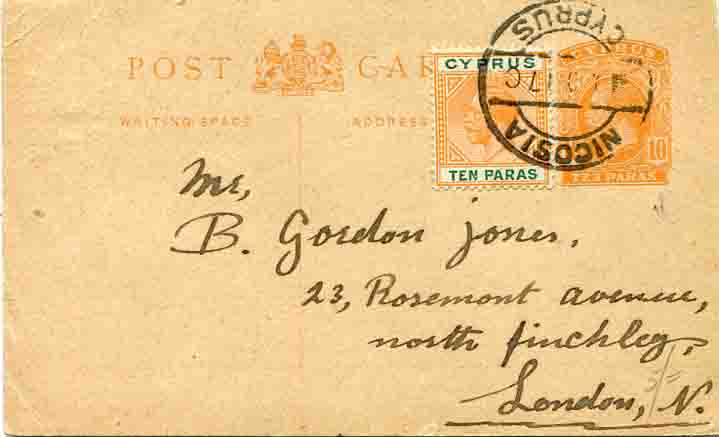 POST CARD
WRITING SPACE ADDRESS
CYPRUS
TEN PARAS
CYPRUS
10
TEN PARAS
NICOSIA
CYPRUS
Mr,
B. Gordon Jones,
23, Rosemont avenue,
north finchley,
London, N.